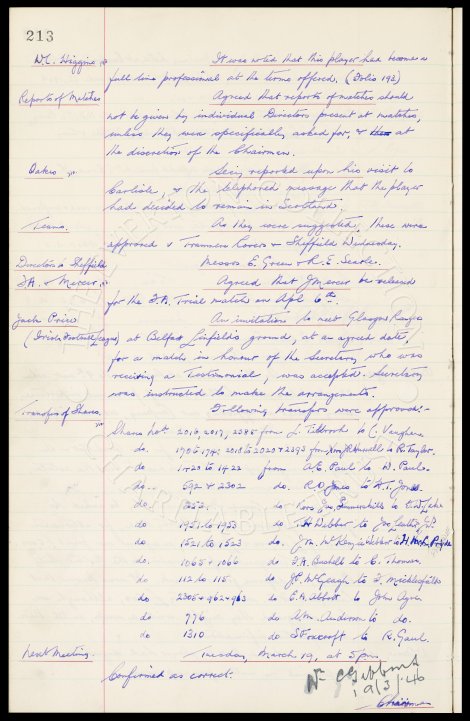 213
W.C. Higgins It was noted that this player had become a
full time professional at the terms offered. (Folio 193)
Reports of Matches Agreed that reports of matches should
not be given by individual Directors present at matches,
unless they were specifically asked for, & at
the discretion of the Chairman.
Oakes Secy reported upon his visit to
Carlisle, & the telephoned message that the player
had decided to remain in Scotland.
Teams. As they were suggested, these were
approved v Tranmere Rovers & Sheffield Wednesday.
Directors to Sheffield Messrs E. Green & R.E. Searle.
F.A. & Mercer Agreed that J Mercer be released
for the F.A. Trial match on Apl 6th.
Jack Price An invitation to meet Glasgow Rangers
(Irish Football League) at Belfast Linfield's ground, at an agreed date,
for a match in honour of the Secretary who was
receiving a Testimonial, was accepted. Secretary
was instructed to make the arrangements.
Transfers of Shares. Following transfers were approved:-
Shares Nos 2016, 2017, 2388 from to C. Vaughan
do. & 2393 from to R. Taylor.
do 1420 to 1422 from A.E. Paul to W. Paul.
do. 592 & 2302 do. R.O. Jones to H.T. Jones.
do 252 do
do 1951 to 1953 do T.H. Webber to
do 1521 to 1523 do.
do. 1065 & 1066 do to C. Thomson
do 112 to 115 do J.P. McGeagh to
do 2305 & 962 & 963 do E.A. Abbott to John Ayres
do 776 do Wm. Anderson to do.
do 1310 do S Foxcroft to R. Gaul.
Next Meeting. Tuesday, March 19, at 5pm.
Confirmed as correct:
W. C. Gibbons
19/3/46
Chairman